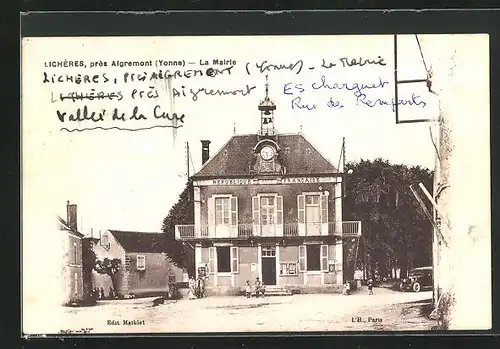 LICHÈRES, près Aigremont (Yonne) — La Mairie
LICHERES, PRÈS AIGREMONT (Yonne) - La Mairie
LICHÈRES PRÈS Aigremont
Vallée de la Cure
Es charguet
Rue des Remparts
RÉPUBLIQUE FRANÇAISE
Edit. Mathiot
L'H., Paris